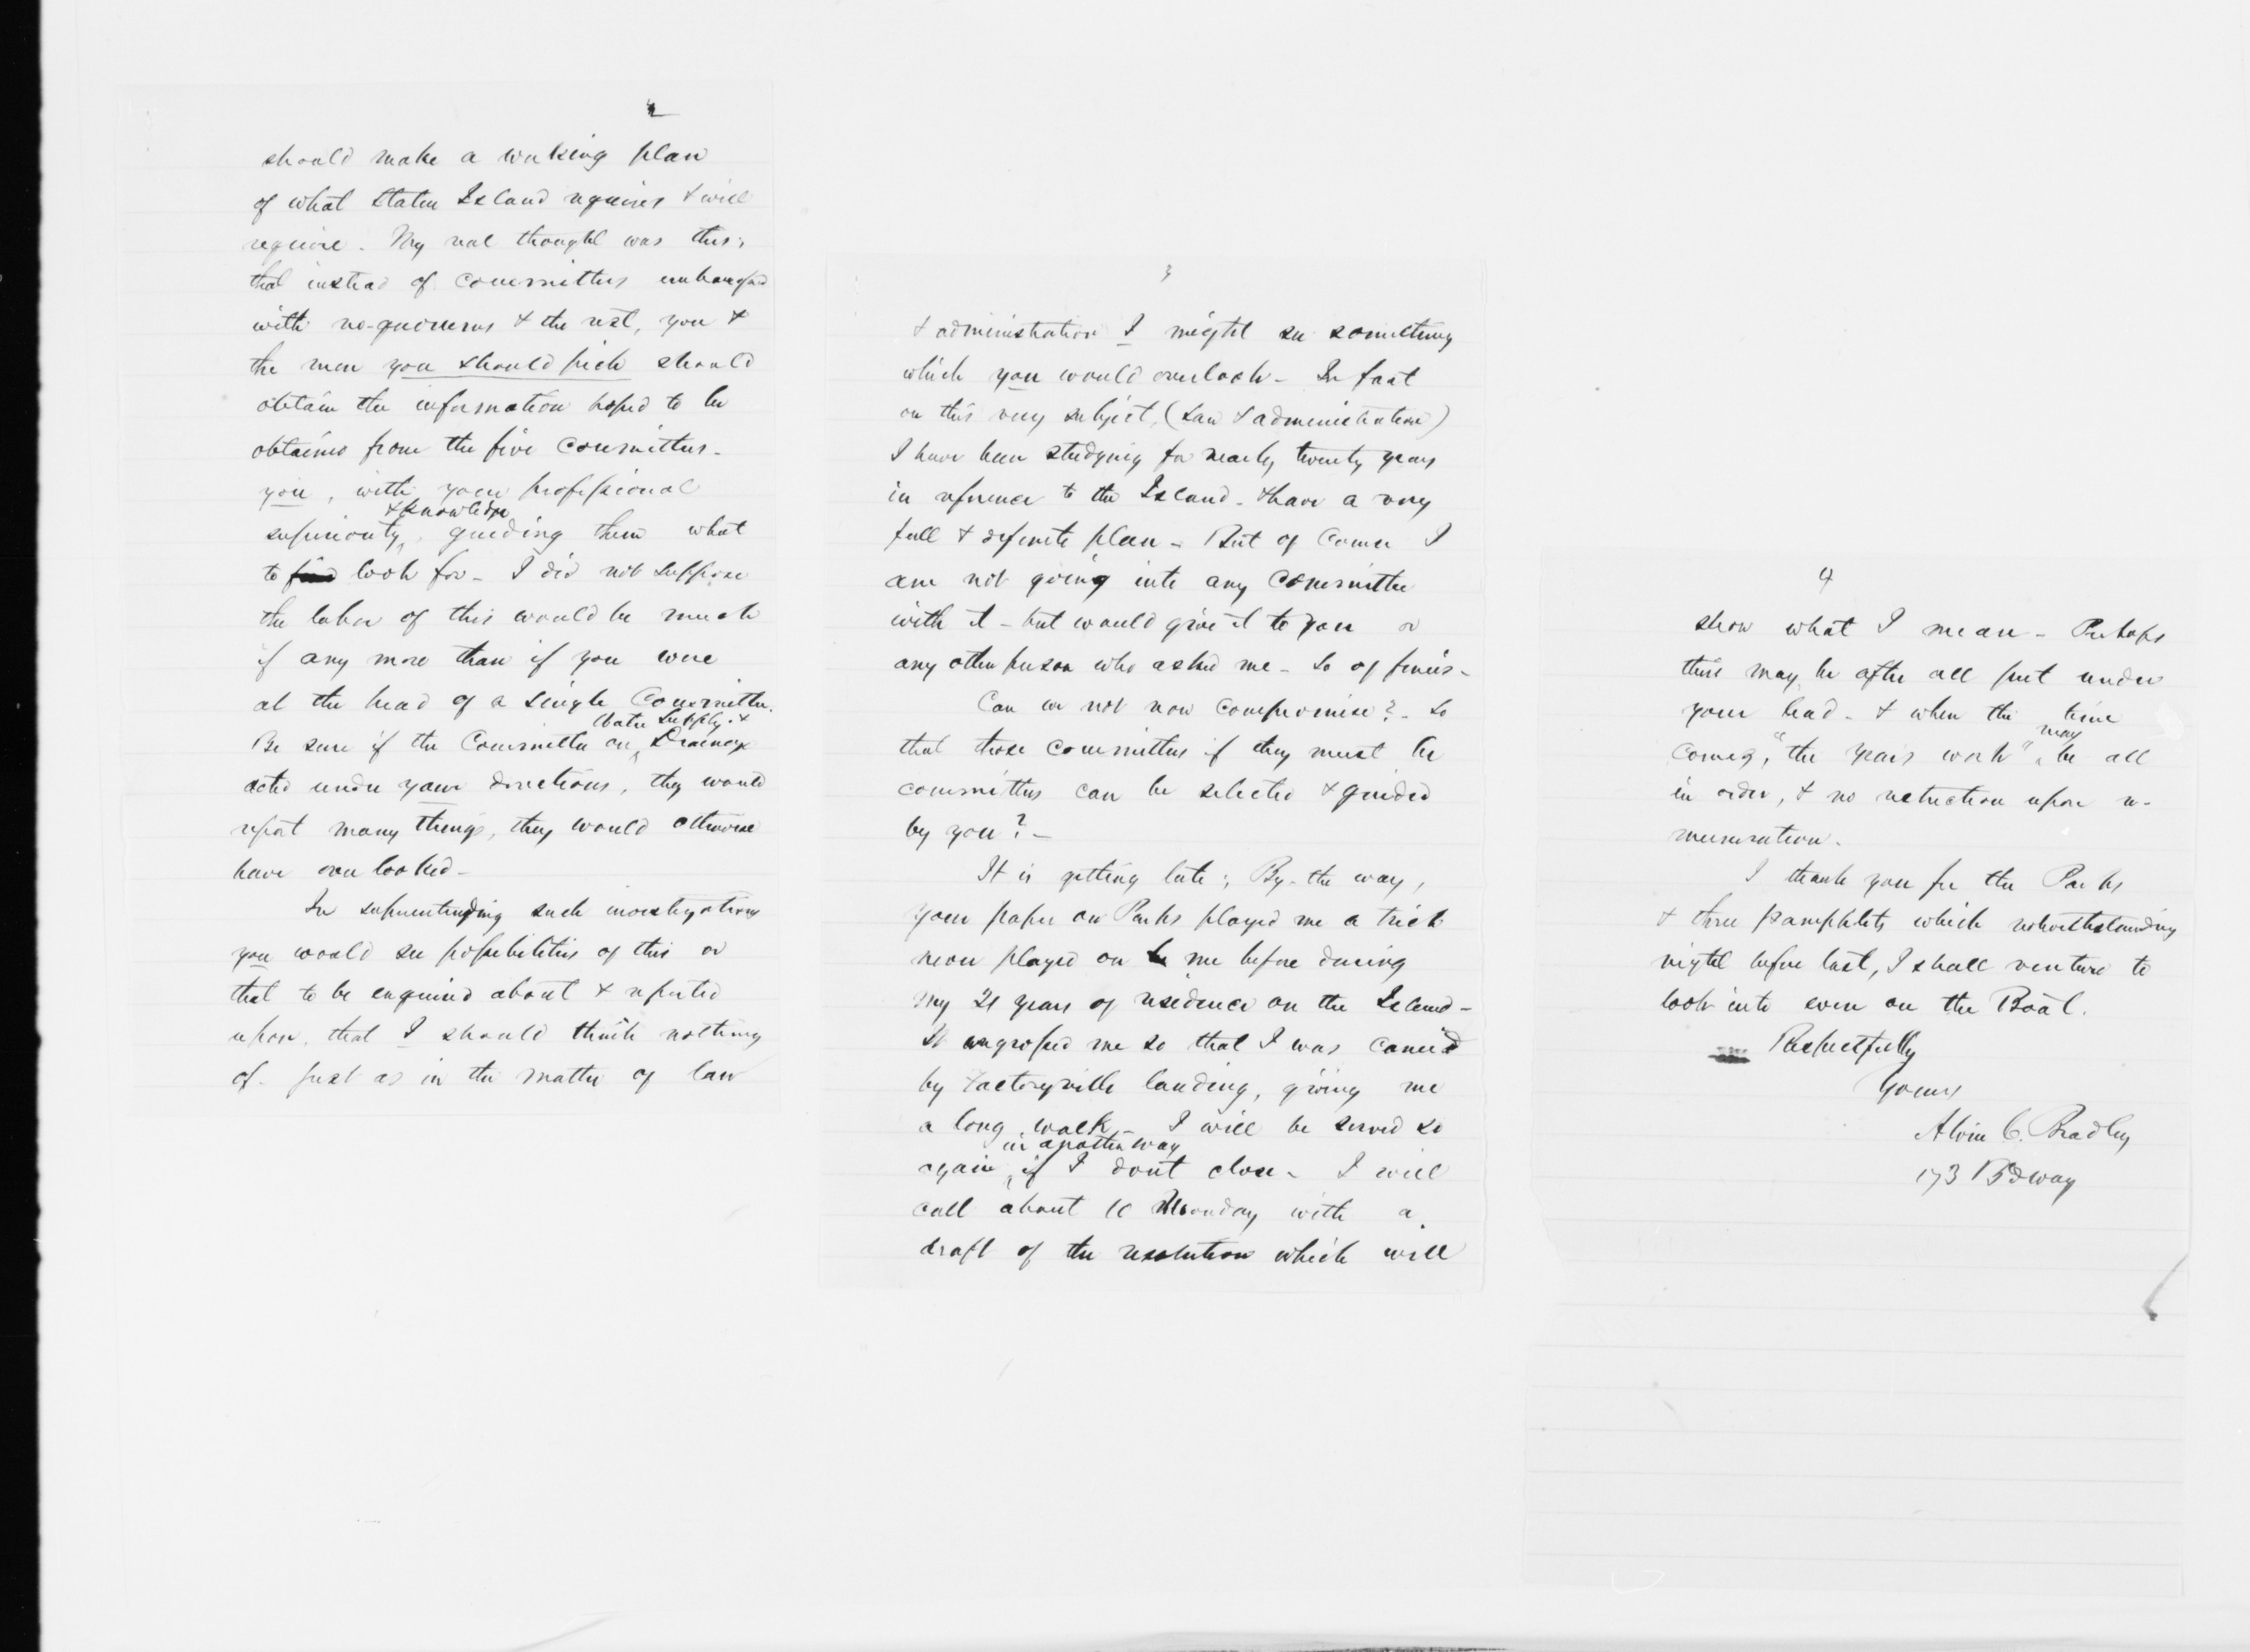 2
should make a working plan
of what Staten Island requires & will
require. My real thought was this;
that instead of committees embarrassed
with no-quorums & the rest, you &
the men you should pick should
obtain the information hoped to be
obtained from the five committees -
you, with your professional
& knowledge
superiority, guiding them what
to find look for - I did not suppose
the labor of this would be much
if any more than if you were
at the head of a single Committee.
Water Supply &
Be sure if the Committee on Drainage
acted under your directions, they would
report many things, they would otherwise
have overlooked -
In superintending such investigations
you would see possibilities of this or
that to be enquired about & reported
upon, that I should think nothing
of. just as in the matter of law
3
& administration I might see something
which you would overlook - In fact
on this very subject, (Law & administration)
I have been studying for nearly twenty years
in reference to the Island - & have a very
full & definite plan - But of course I
am not going into any Committee
with it - but would give it to you or
any other person who asked me - So of
Can we not now compromise? - So
that those committees if they must be
committees can be selected & guided
by you? -
It is getting late; By-the way,
your paper on Parks played me a trick
never played on me before during
my 21 years of residence on the Island -
It engrossed me so that I was carried
by Factoryville landing, giving me
a long walk - I will be served so
in another way
again, if I dont close - I will
call about 10 Monday with a
draft of the resolution which will
4
show what I mean - Perhaps
there may be after all put under
your lead - & when the time
may
comes, "the years work" be all
in order, & no restriction upon re-
muneration.
I thank you for the Parks
& three pamphlets which notwithstanding
night before last, I shall venture to
look into even on the Boat.
Respectfully
Yours
Alvin C. Bradley
173 Bdway